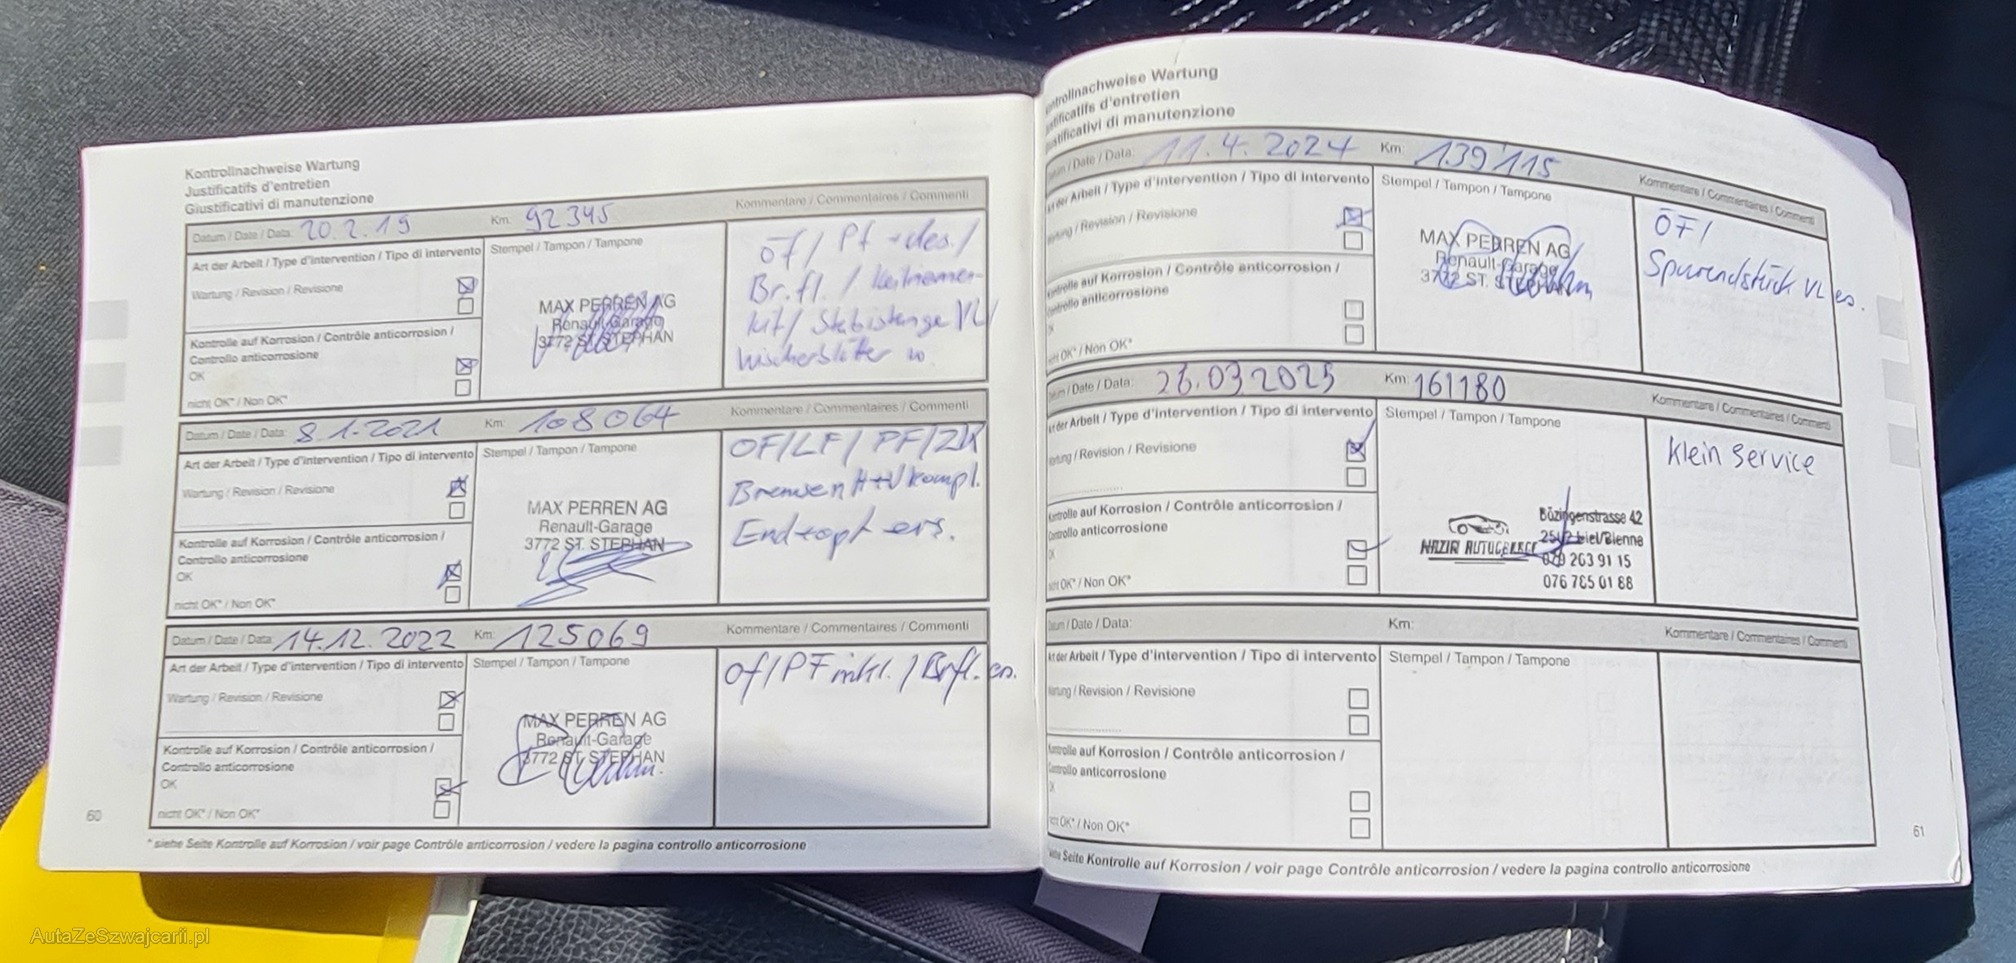 Kontrollnachweise Wartung
Justificatifs d'entretien
Giustificativi di manutenzione
Datum / Date / Data: 20.2.19 Km: 92345 Kommentare / Commentaires / Commenti
Art der Arbeit / Type d'intervention / Tipo di intervento
Wartung / Revision / Revisione
Kontrolle auf Korrosion / Contrôle anticorrosion /
Controllo anticorrosione
OK
nicht OK* / Non OK*
Stempel / Tampon / Tampone
MAX PERREN AG
Renault-Garage
3772 ST. STEPHAN
öf / Pf + des. /
Br.fl. /
kit / Stabistange VL /
Wischerblätter
Datum / Date / Data: 8.1.2021 Km: 108064 Kommentare / Commentaires / Commenti
Art der Arbeit / Type d'intervention / Tipo di intervento
Wartung / Revision / Revisione
Kontrolle auf Korrosion / Contrôle anticorrosion /
Controllo anticorrosione
OK
nicht OK* / Non OK*
Stempel / Tampon / Tampone
MAX PERREN AG
Renault-Garage
3772 ST. STEPHAN
OF/LF/PF/ZK
Bremsen H+V kompl.
Endtopf ers.
Datum / Date / Data: 14.12.2022 Km: 125069 Kommentare / Commentaires / Commenti
Art der Arbeit / Type d'intervention / Tipo di intervento
Wartung / Revision / Revisione
Kontrolle auf Korrosion / Contrôle anticorrosion /
Controllo anticorrosione
OK
nicht OK* / Non OK*
Stempel / Tampon / Tampone
MAX PERREN AG
Renault-Garage
3772 ST. STEPHAN
Of/PF inkl. / Brfl. ers.
60
* siehe Seite Kontrolle auf Korrosion / voir page Contrôle anticorrosion / vedere la pagina controllo anticorrosione
ntrollnachweise Wartung
stificatifs d'entretien
stificativi di manutenzione
/ Date / Data: 11.4.2024 Km: 139'115 Kommentare / Commentaires / Commenti
der Arbeit / Type d'intervention / Tipo di intervento
/ Revision / Revisione
Kontrolle auf Korrosion / Contrôle anticorrosion /
Controllo anticorrosione
OK* / Non OK*
Stempel / Tampon / Tampone
MAX PERREN AG
Renault-Garage
3772 ST. STEPHAN
ÖF /
Spurendstück VL ers.
/ Date / Data: 26.03.2025 Km: 161180 Kommentare / Commentaires / Commenti
der Arbeit / Type d'intervention / Tipo di intervento
/ Revision / Revisione
Kontrolle auf Korrosion / Contrôle anticorrosion /
Controllo anticorrosione
OK* / Non OK*
Stempel / Tampon / Tampone
NAZIR
Büzingenstrasse 42
Biel/Bienne
079 263 91 15
076 765 01 88
Klein Service
/ Date / Data: Km: Kommentare / Commentaires / Commenti
der Arbeit / Type d'intervention / Tipo di intervento
/ Revision / Revisione
Kontrolle auf Korrosion / Contrôle anticorrosion /
Controllo anticorrosione
OK* / Non OK*
Stempel / Tampon / Tampone
61
Seite Kontrolle auf Korrosion / voir page Contrôle anticorrosion / vedere la pagina controllo anticorrosione
AutaZeSzwajcarii.pl